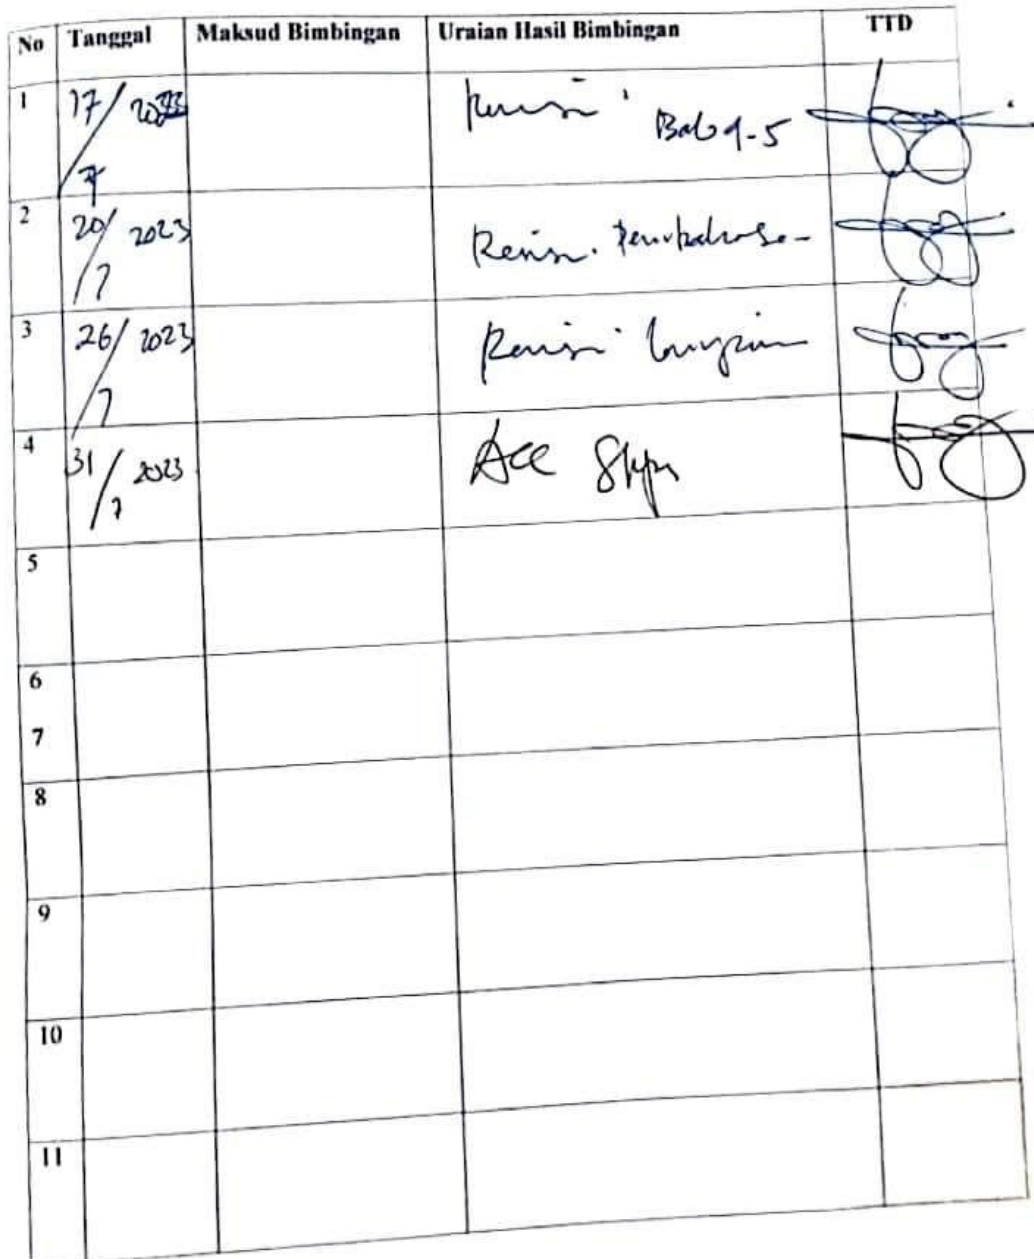 No Tanggal Maksud Bimbingan Uraian Hasil Bimbingan TTD
1 17/7 2023 Revisi Bab 4-5
2 20/7 2023 Revisi
3 26/7 2023 Revisi
4 31/7 2023 Acc Skripsi
5
6
7
8
9
10
11